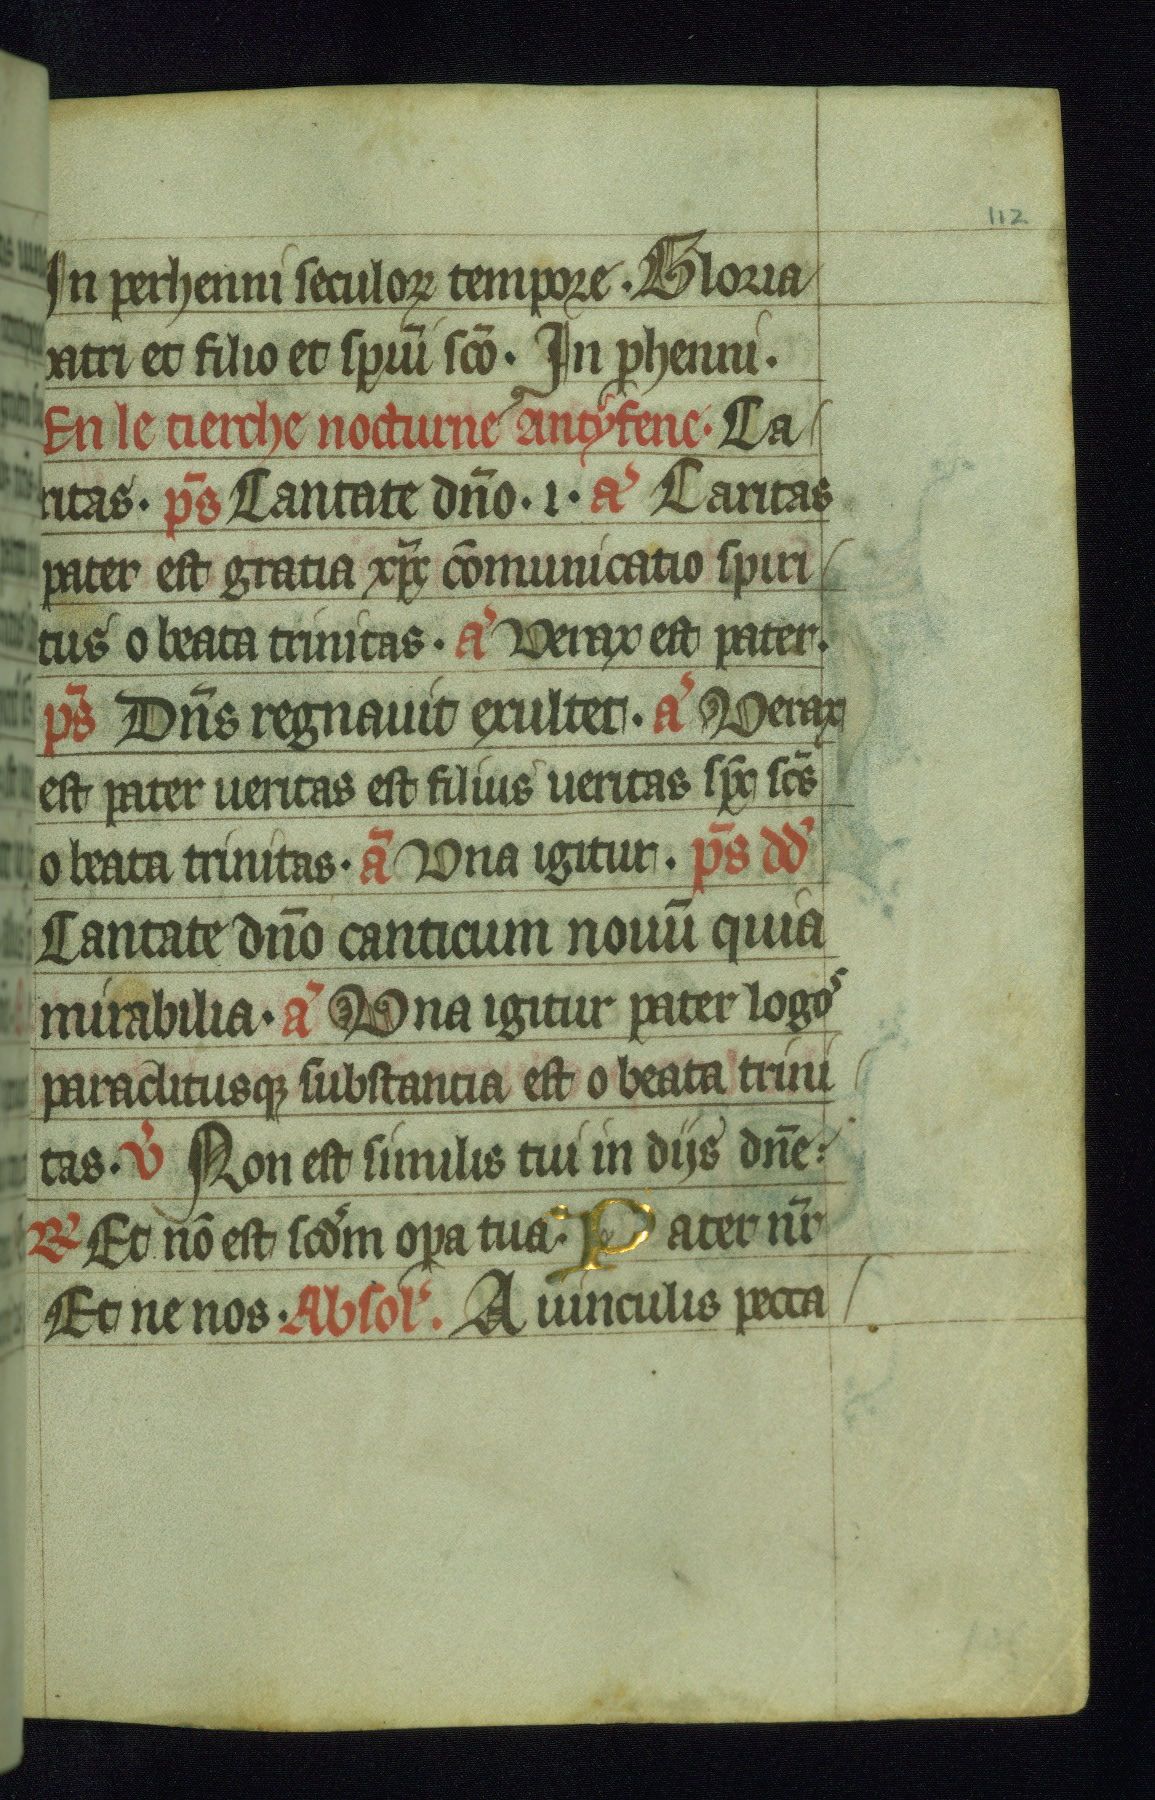 112
In perhenni seculoꝝ tempore. Gloria
patri et filio et spiũi sc̃o. In ꝑhenni.
En le tierche nocturne antyfene. Ca
ritas. ps̃ Cantate dño. 1. a᷎ Caritas
pater est gratia xp̃x cõmunicatio spiri
tus o beata trinitas. a᷎ Verax est pater.
ps̃ Dñs regnauit exultet. a᷎ Verax
est pater ueritas est filius ueritas sp̃x sc̃s
o beata trinitas. ã Vna igitur. ps̃ dd᷎
Cantate dño canticum nouũ quia
mirabilia. a᷎ Vna igitur pater logos
paraclitusqꝫ substantia est o beata trini
tas. v᷎ Non est similis tui in dijs dñe:
℟ Et nõ est scd᷎m oꝑa tua. Pater nr̃
Et ne nos. Absol᷎. A uinculis pecca